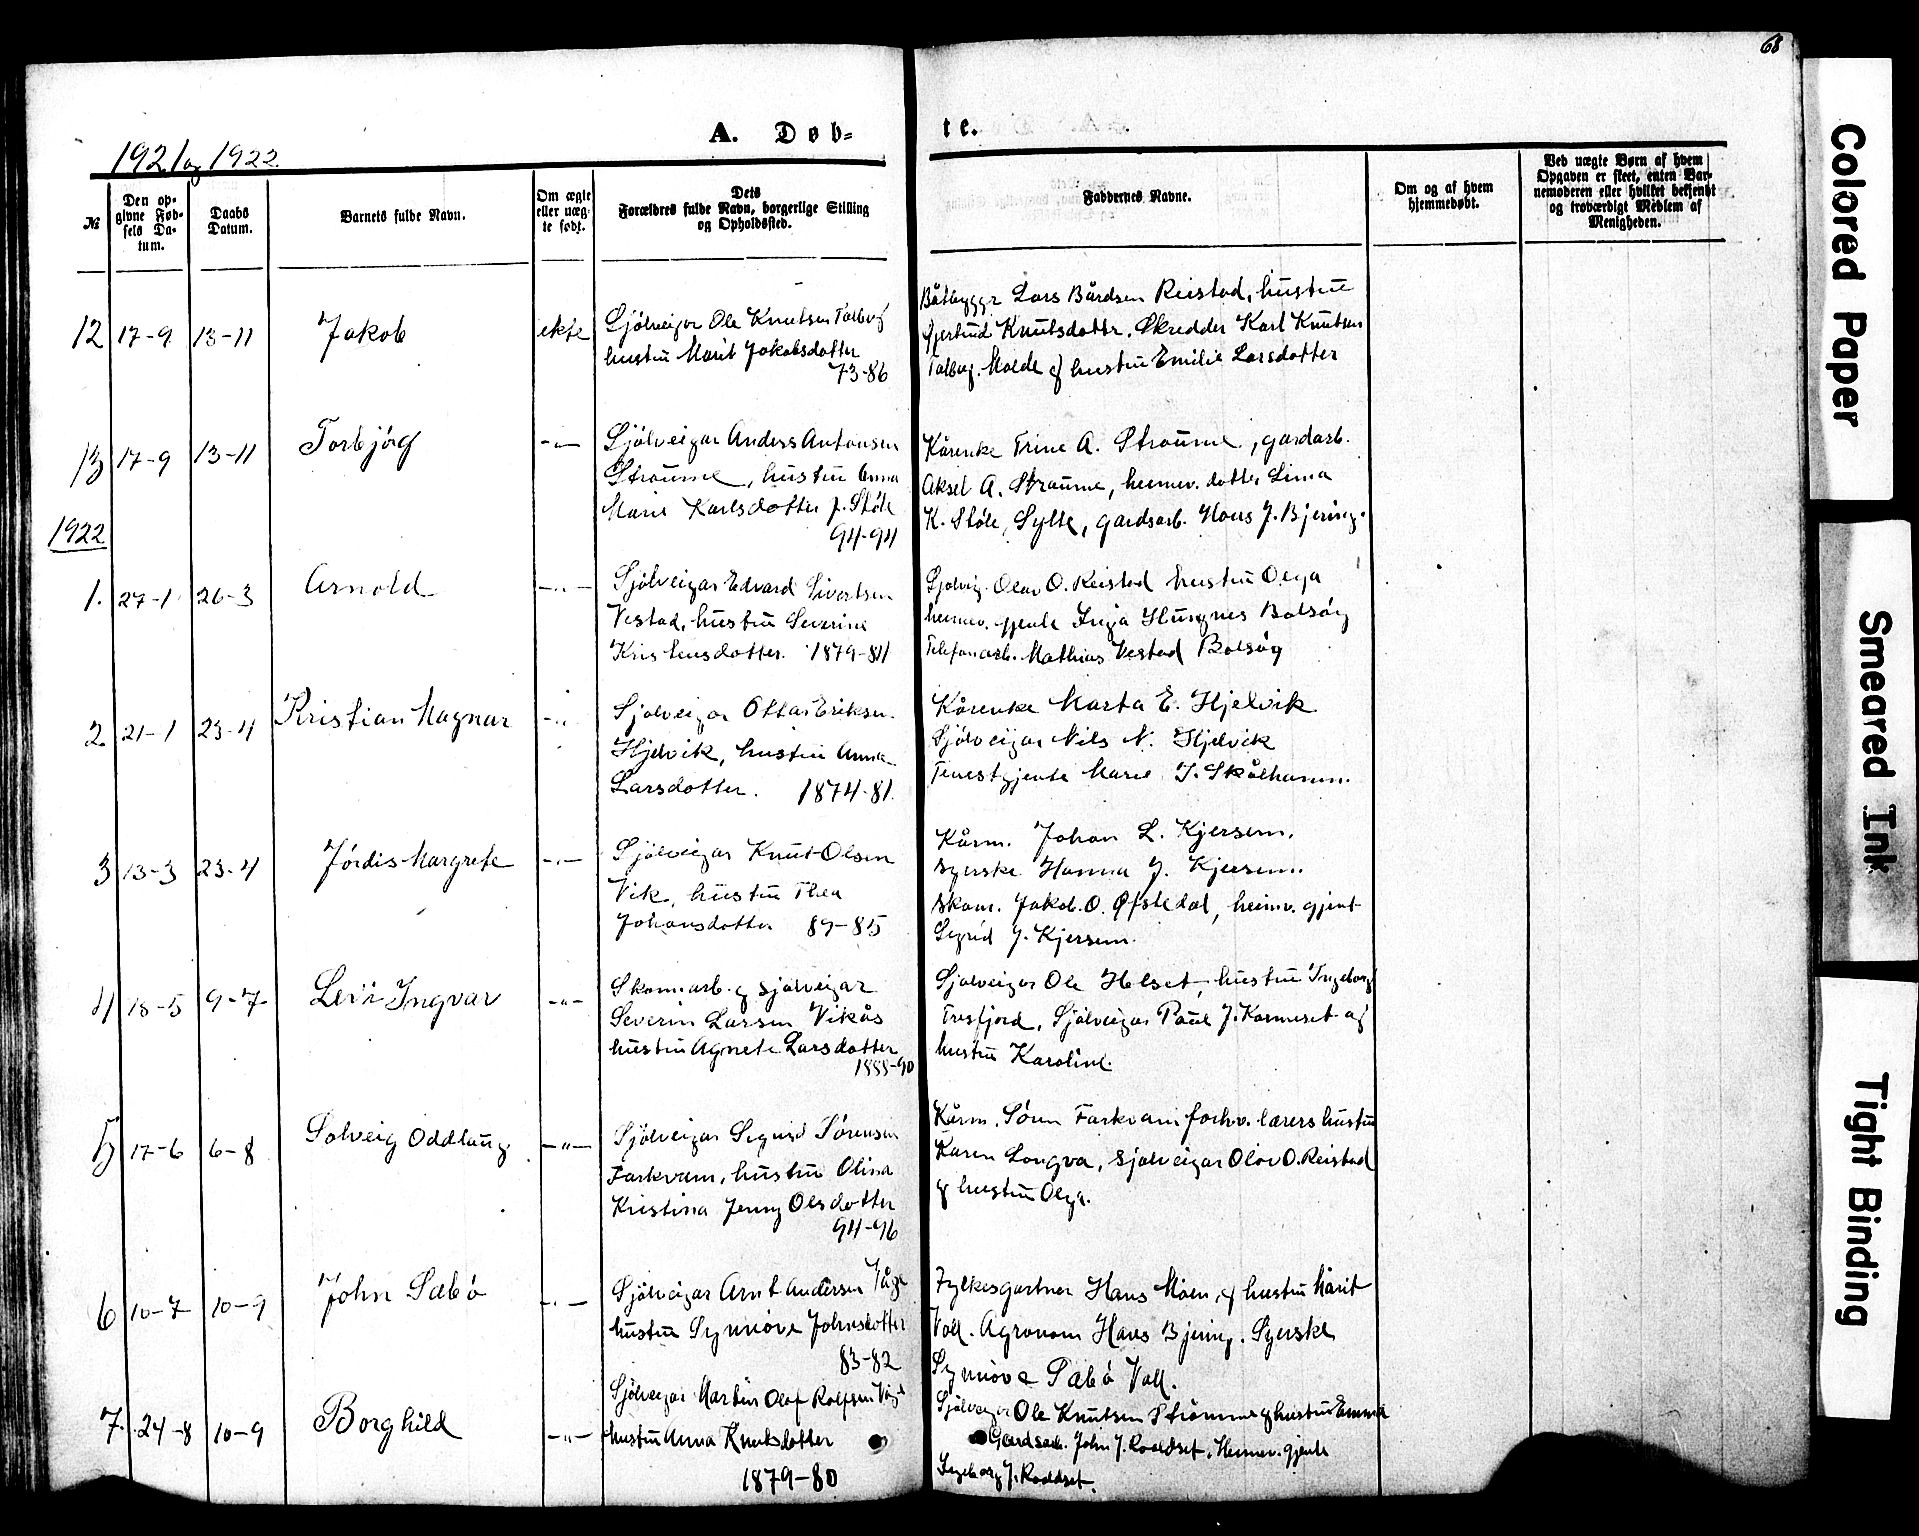 68
A. Døb=
te.
1921 og 1922.
№
Den op=
givne Fød=
sels Da=
tum.
Daabs
Datum.
Barnets fulde Navn.
Om ægte
eller uæg=
te født.
Dets
Forældres fulde Navn, borgerlige Stilling
og Opholdssted.
Faddernes Navne.
Om og af hvem
hjemmedøbt.
Ved uægte Børn af hvem
Opgaven er skeet, enten Bar=
nemoderen eller hvilket bekjendt
og troværdigt Medlem af
Menigheden.
12 17-9 13-11 Jakob ekte
Sjölveigar Ole Knutsen Talberg
hustru Marit Jakobsdotter
73-86
Båtbyggr Lars Bårdsen Reistad, hustru
Gjertrud Knutsdottr. Skredder Karl Knutsen
Talberg. Molde og hustru Emilie Larsdotter
13 17-9 13-11 Torbjörg -"-
Sjölveigar Anders Antonsen
Straume, hustru Anna
Marie Karlsdotter f. Støle
94-94
Kårenke Trine A. Straume, gardarb.
Aksel A. Straume, heimev. dotter Lina
K. Støle, Sylte, gardsarb. Hans J. Bjering.
1922
1. 27-1 26-3 Arnold -"-
Sjölveigar Edvard Sivertsen
Vestad, hustru Severine
Kristensdotter. 1879-81
Sjolveig. Olav O. Reistad hustru Olga
heimev. gjente Inga Hungnes Bolsöy
Telefonarb. Mathias Vestad Bolsöy
2 21-1 23-4 Kristian Magnar -"-
Sjolveigar Ottar Eriksen
Hjelvik, hustru Anna
Larsdotter. 1874-81.
Kårenke Marta E. Hjelvik
Sjölveigar Nils N. Hjelvik
Tenestgjente Marie J. Skålhamn.
3 13-3 23-4 Jördis Margrete -"-
Sjölveigar Knut Olsen
Vik, hustru Thea
Johansdotter 87-85
Kårm. Johan L. Kjersem.
Syerske Hanna J. Kjersem.
Skom. Jakob O. Øfstedal, heimv. gjent
Sigrid J. Kjersem.
4 18-5 9-7 Levi Ingvar -"-
Skomarb. og sjølveigar
Severin Larsen Vikås
hustru Agnete Larsdotter
1888-90
Sjolveigar Ole Helset, hustru Ingeborg
Tresfjord, Sjölveigar Paul J. Kormeset og
hustru Karoline.
5 17-6 6-8 Solveig Oddlaug -"-
Sjölveigar Sigurd Sörensen
Farkvam, hustru Olina
Kristina Jenny Olsdotter
94-96
Kårm. Sören Farkvam forhv. lærers hustru
Karen Longva, Sjølveigar Olav O. Reistad
og hustru Olga.
6 10-7 10-9 John Sæbö -"-
Sjölveigar Arnt Andersen Våge
hustru Synnöve Johnsdotter
83-82
Fylkesgartner Hans Moen, og hustru Marit
Voll. Agronom Hans Bjering. Syerske
Synnöve Sæbö Voll.
7. 24-8 10-9 Borghild -"-
Sjölveigar Martin Olaf Rolfsen Våge
hustru Anna Knutsdotter
1879-80
Sjölveigar Ole Knutsen Strömme og hustru Emma
Gardsarb. John J. Roddset. Heimev. gjente
Ingeborg J. Roddset.
Colored Paper
Smeared Ink
Tight Binding